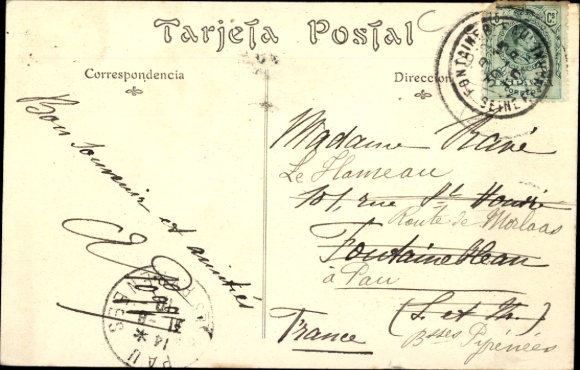 Tarjeta Postal
Correspondencia
Dirección
Bon souvenir et amitiés
Madame Ravé
Le Hameau
101, rue St. Honoré
Route de Morlaas
Fontainebleau
à Pau
(S. et M.)
France
Bsses Pyrénées
FONTAINEBLEAU
SEINE
PAU
14